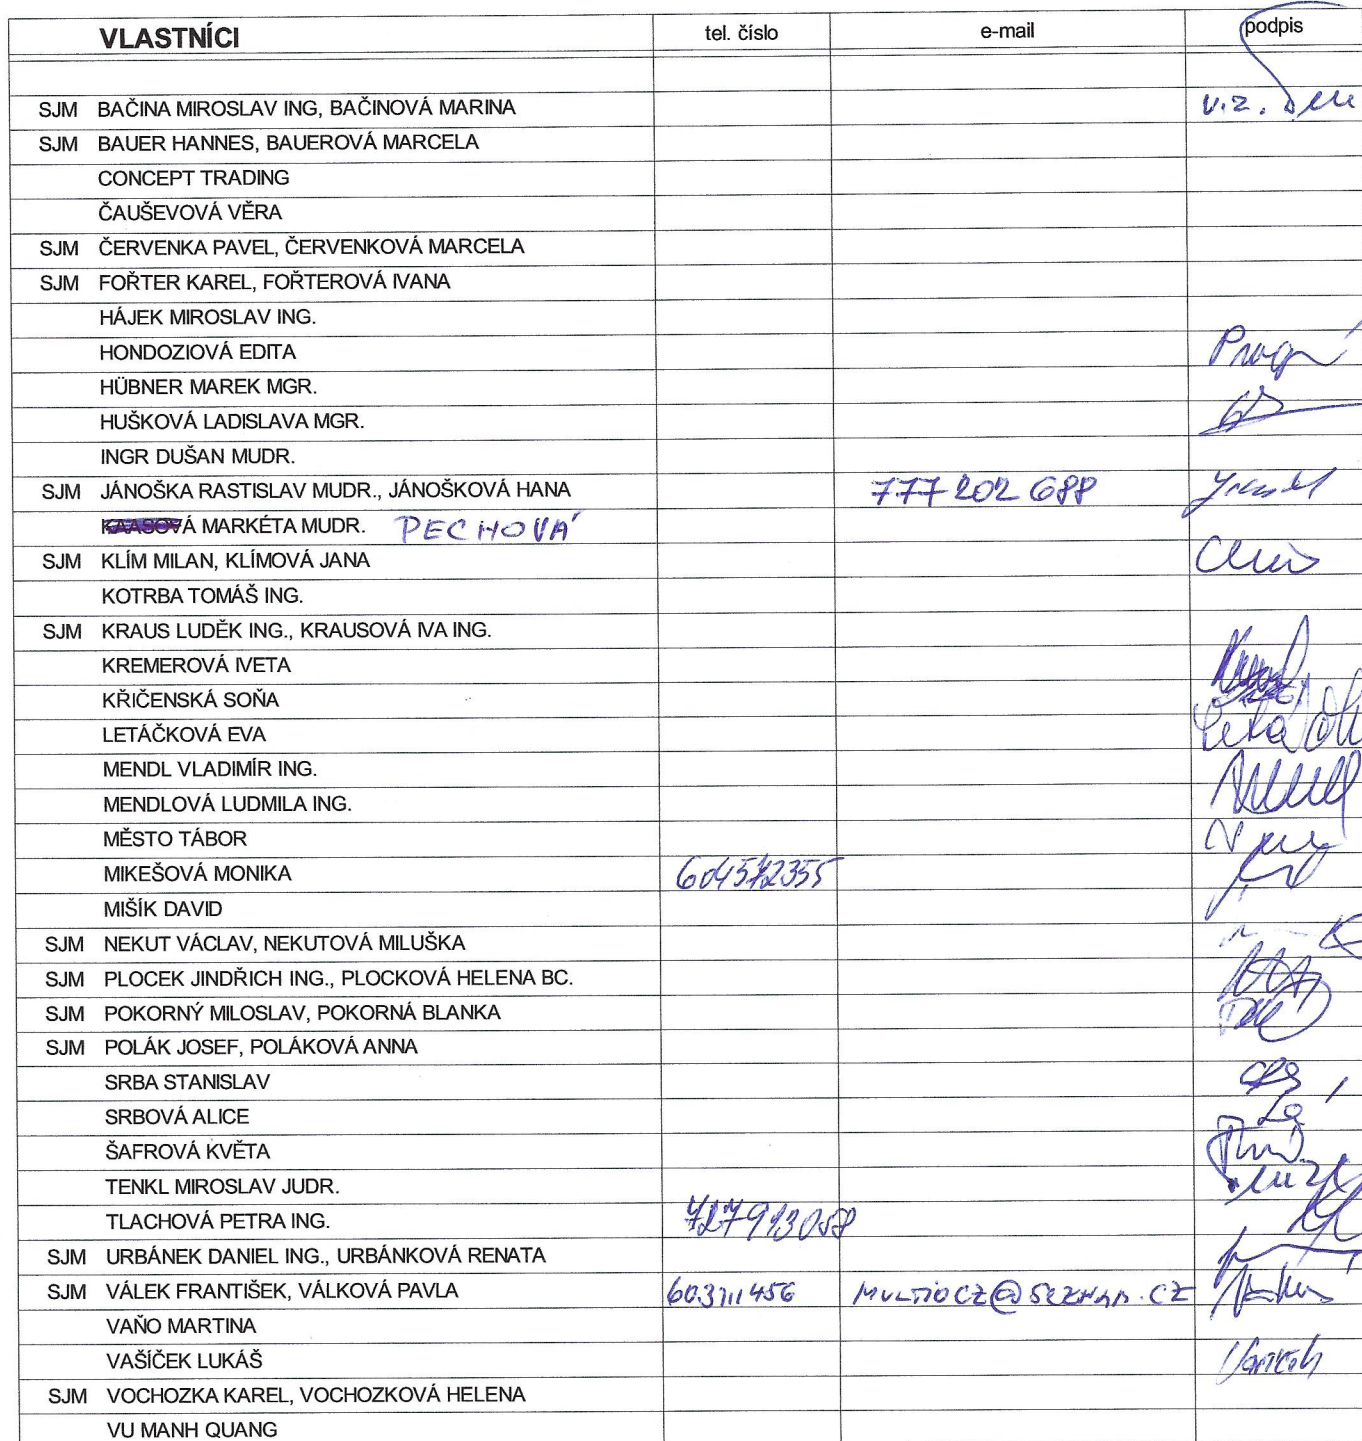 VLASTNÍCI tel. číslo e-mail podpis
SJM BAČINA MIROSLAV ING, BAČINOVÁ MARINA v.z.
SJM BAUER HANNES, BAUEROVÁ MARCELA
CONCEPT TRADING
ČAUŠEVOVÁ VĚRA
SJM ČERVENKA PAVEL, ČERVENKOVÁ MARCELA
SJM FOŘTER KAREL, FOŘTEROVÁ IVANA
HÁJEK MIROSLAV ING.
HONDOZIOVÁ EDITA
HÜBNER MAREK MGR.
HUŠKOVÁ LADISLAVA MGR.
INGR DUŠAN MUDR.
SJM JÁNOŠKA RASTISLAV MUDR., JÁNOŠKOVÁ HANA 777 202 688
KAASOVÁ MARKÉTA MUDR. PECHOVÁ
SJM KLÍM MILAN, KLÍMOVÁ JANA
KOTRBA TOMÁŠ ING.
SJM KRAUS LUDĚK ING., KRAUSOVÁ IVA ING.
KREMEROVÁ IVETA
KŘIČENSKÁ SOŇA
LETÁČKOVÁ EVA
MENDL VLADIMÍR ING.
MENDLOVÁ LUDMILA ING.
MĚSTO TÁBOR
MIKEŠOVÁ MONIKA 604572355
MIŠÍK DAVID
SJM NEKUT VÁCLAV, NEKUTOVÁ MILUŠKA
SJM PLOCEK JINDŘICH ING., PLOCKOVÁ HELENA BC.
SJM POKORNÝ MILOSLAV, POKORNÁ BLANKA
SJM POLÁK JOSEF, POLÁKOVÁ ANNA
SRBA STANISLAV
SRBOVÁ ALICE
ŠAFROVÁ KVĚTA
TENKL MIROSLAV JUDR.
TLACHOVÁ PETRA ING. 727913058
SJM URBÁNEK DANIEL ING., URBÁNKOVÁ RENATA
SJM VÁLEK FRANTIŠEK, VÁLKOVÁ PAVLA 603711456 MULTIOCZ@SEZNAM.CZ
VAŇO MARTINA
VAŠÍČEK LUKÁŠ
SJM VOCHOZKA KAREL, VOCHOZKOVÁ HELENA
VU MANH QUANG